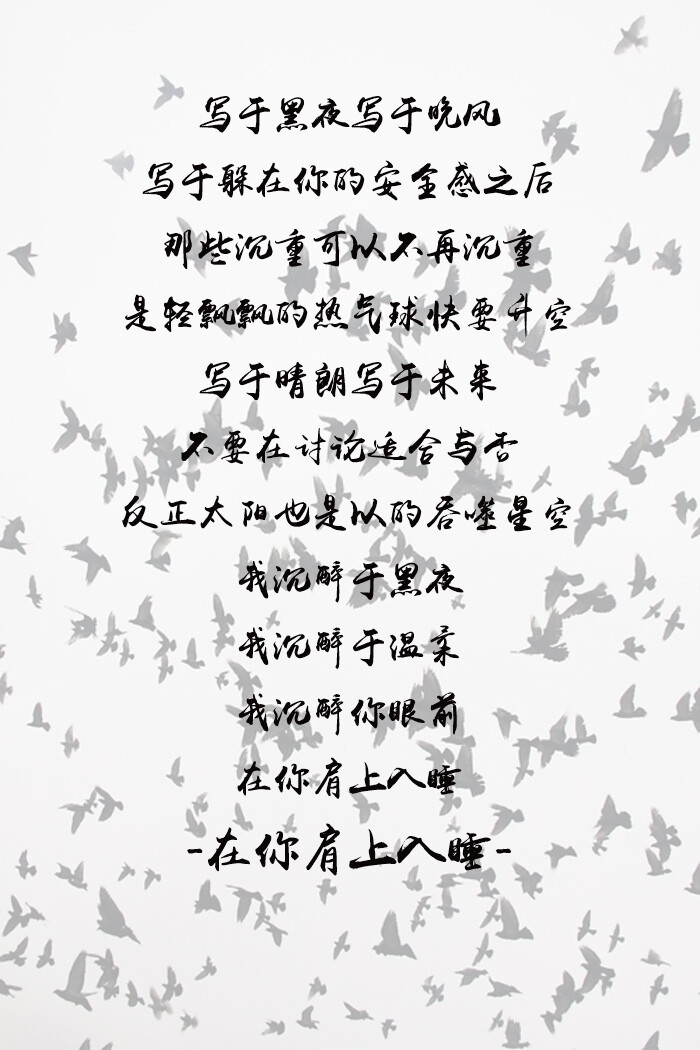 写于黑夜写于晚风
写于躲在你的安全感之后
那些沉重可以不再沉重
是轻飘飘的热气球快要升空
写于晴朗写于未来
不要在讨论适合与否
反正太阳也是以的吞噬星空
我沉醉于黑夜
我沉醉于温柔
我沉醉你眼前
在你肩上入睡
-在你肩上入睡-